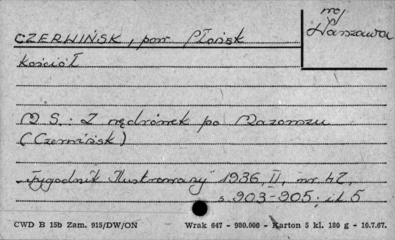 woj.
Warszawa
CZERWIŃSK, pow. Płońsk
Kościół
M S.: Z wędrówek po Mazowszu
(Czerwińsk)
"Tygodnik Ilustrowany" 1936, II, nr. 42,
s. 903-905; il. 5
CWD B 15b Zam. 915/DW/ON Wrak 647 - 980.000 - Karton 5 kl. 180 g - 10.7.67.